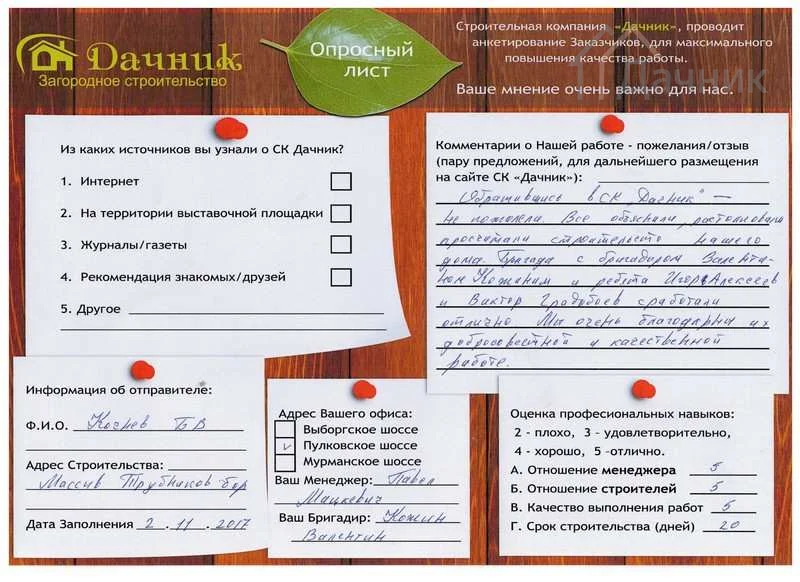 Дачник
Загородное строительство
Опросный
лист
Строительная компания «Дачник», проводит
анкетирование Заказчиков, для максимального
повышения качества работы.
Ваше мнение очень важно для нас.
Дачник
Из каких источников вы узнали о СК Дачник?
1. Интернет
2. На территории выставочной площадки
3. Журналы/газеты
4. Рекомендация знакомых/друзей
5. Другое
Комментарии о Нашей работе - пожелания/отзыв
(пару предложений, для дальнейшего размещения
на сайте СК «Дачник»):
Обратившись в СК „Дачник" —
не пожалели. Все объяснили, растолковали
просчитали строительство нашего
дома. Бригада с бригадиром Валенти-
ном Кожиным и ребята Игорь Алексеев
и Виктор Градобоев сработали
отлично Мы очень благодарны их
добросовестной и качественной
работе.
Информация об отправителе:
Ф.И.О. Кочнев БВ
Адрес Строительства:
Массив Трубников бор
Дата Заполнения 2 . 11 . 2017
Адрес Вашего офиса:
Выборгское шоссе
Пулковское шоссе
Мурманское шоссе
Ваш Менеджер: Павел
Мацкевич
Ваш Бригадир: Кожин
Валентин
Оценка професиональных навыков:
2 - плохо, 3 - удовлетворительно,
4 - хорошо, 5 -отлично.
А. Отношение менеджера 5
Б. Отношение строителей 5
В. Качество выполнения работ 5
Г. Срок строительства (дней) 20